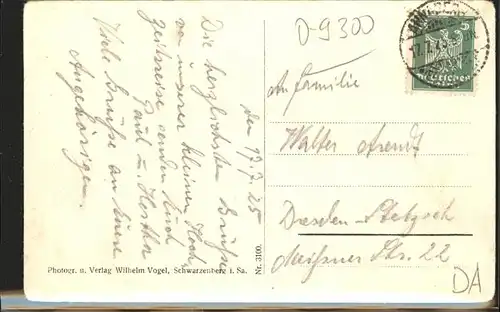 D-9300
den 17.7.25
Die herzlichsten Grüße
von unserer kleinen Hoch
zeitsreise senden Euch
Paul u. Hertha
Viele Grüße an Euere
Angehörigen.
An Familie
Walter Arendt
Dresden-Stetzsch
Meißner Str. 22
DA
Photogr. u. Verlag Wilhelm Vogel, Schwarzenberg i. Sa.
Nr. 3100.